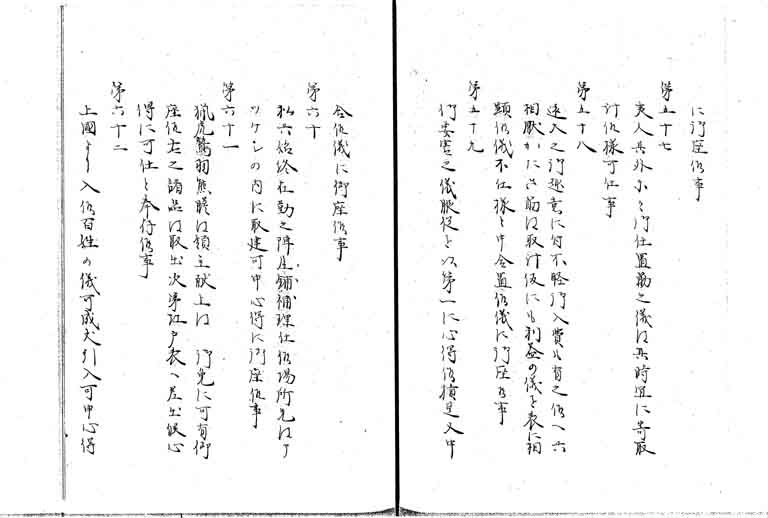 に御座候事
第五十七
夷人其外小之御仕置筋之儀は其時宜に寄取
計候様可仕事
第五十八
遠大之御趣意に付不軽御入費も有之候へ共
相賑かにさ筋は取計仮にも利益の儀を表に相
顕候儀不仕様に申合置候儀に御座候事
第五十九
何安害之儀服従を以第一に心得候積是又申
合候儀に御座候事
第六十
私共始終在勤之陣屋鋪補理仕候場所先はア
ツケシの内に取建可申心得に御座候事
第六十一
猟虎鷲羽熊膽は領主献上は 御免に可有御
座候左之諸品は取出次第江戸表へ差出候心
得に可仕と奉存候事
第六十二
上國より入候百姓の儀可成丈引入可申心得